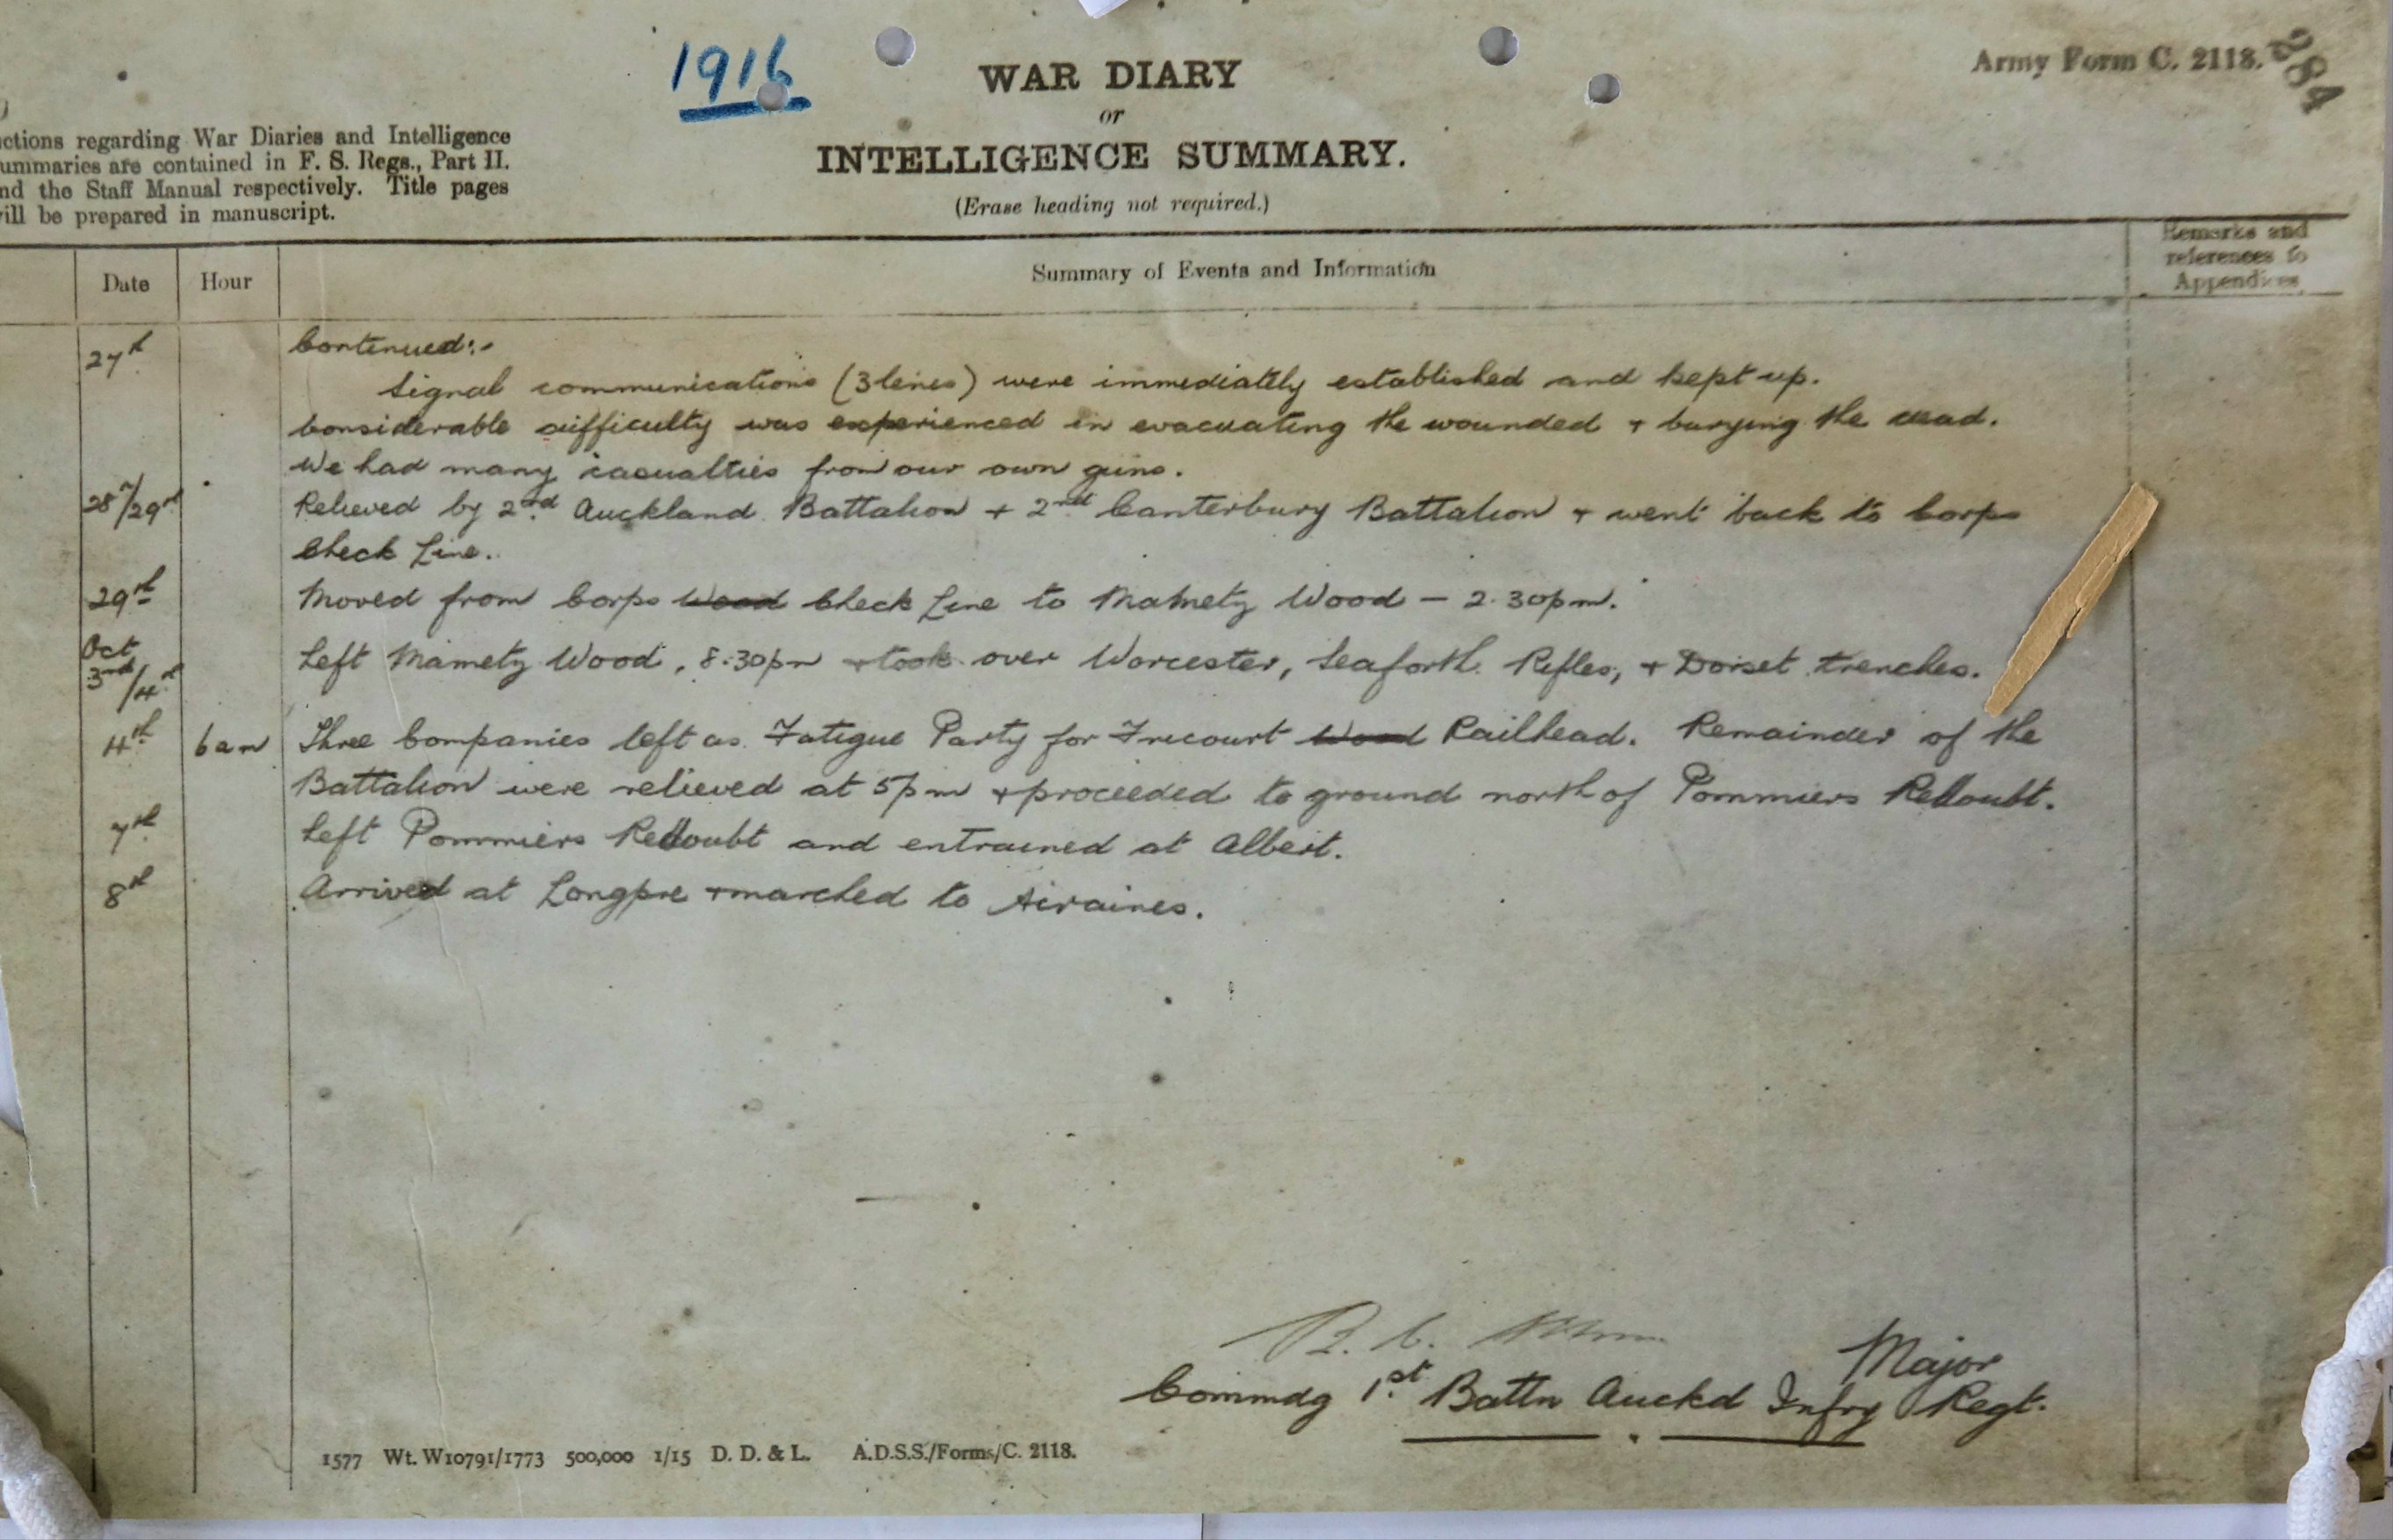 1916
WAR DIARY
Army Form C. 2118.
284
or
INTELLIGENCE SUMMARY.
(Erase heading not required.)
ctions regarding War Diaries and Intelligence
ummaries are contained in F. S. Regs., Part II.
nd the Staff Manual respectively. Title pages
ill be prepared in manuscript.
Date Hour Summary of Events and Information
Remarks and
references to
Appendices
27th Continued:-
Signal communications (3 lines) were immediately established and kept up.
Considerable difficulty was experienced in evacuating the wounded + burying the dead.
We had many casualties from our own guns.
28th/29th Relieved by 2nd Auckland Battalion + 2nd Canterbury Battalion + went back to Corps
Check Line.
29th Moved from Corps Wood Check Line to Mametz Wood - 2.30pm.
Oct
3rd/4th Left Mametz Wood, 8.30pm + took over Worcester, Seaforth Rifles, + Dorset trenches.
4th 6am Three Companies left as Fatigue Party for Fricourt Wood Railhead. Remainder of the
Battalion were relieved at 5pm + proceeded to ground north of Pommiers Redoubt.
7th Left Pommiers Redoubt and entrained at Albert.
8th Arrived at Longpre + marched to Airaines.
R. C.
Major
Commdg 1st Battn Auckd Infry Regt.
1577 Wt. W10791/1773 500,000 1/15 D. D. & L. A.D.S.S./Forms/C. 2118.